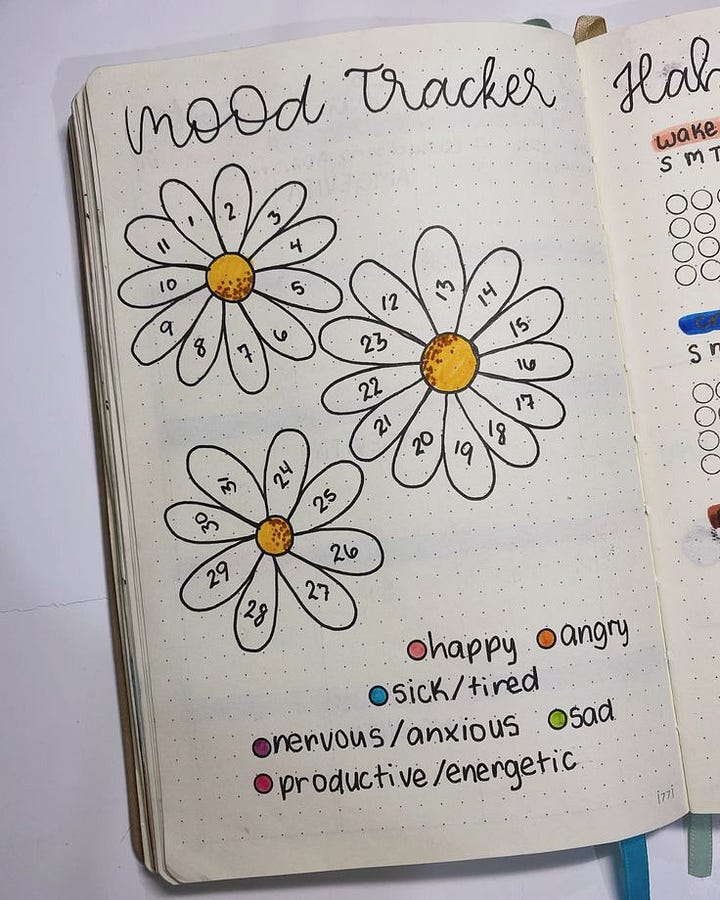 mood Tracker
1
2
3
4
5
6
7
8
9
10
11
12
13
14
15
16
17
18
19
20
21
22
23
24
25
26
27
28
29
30
31
happy angry
sick/tired
nervous/anxious sad
productive/energetic
177
Hab
wake
S M T
S